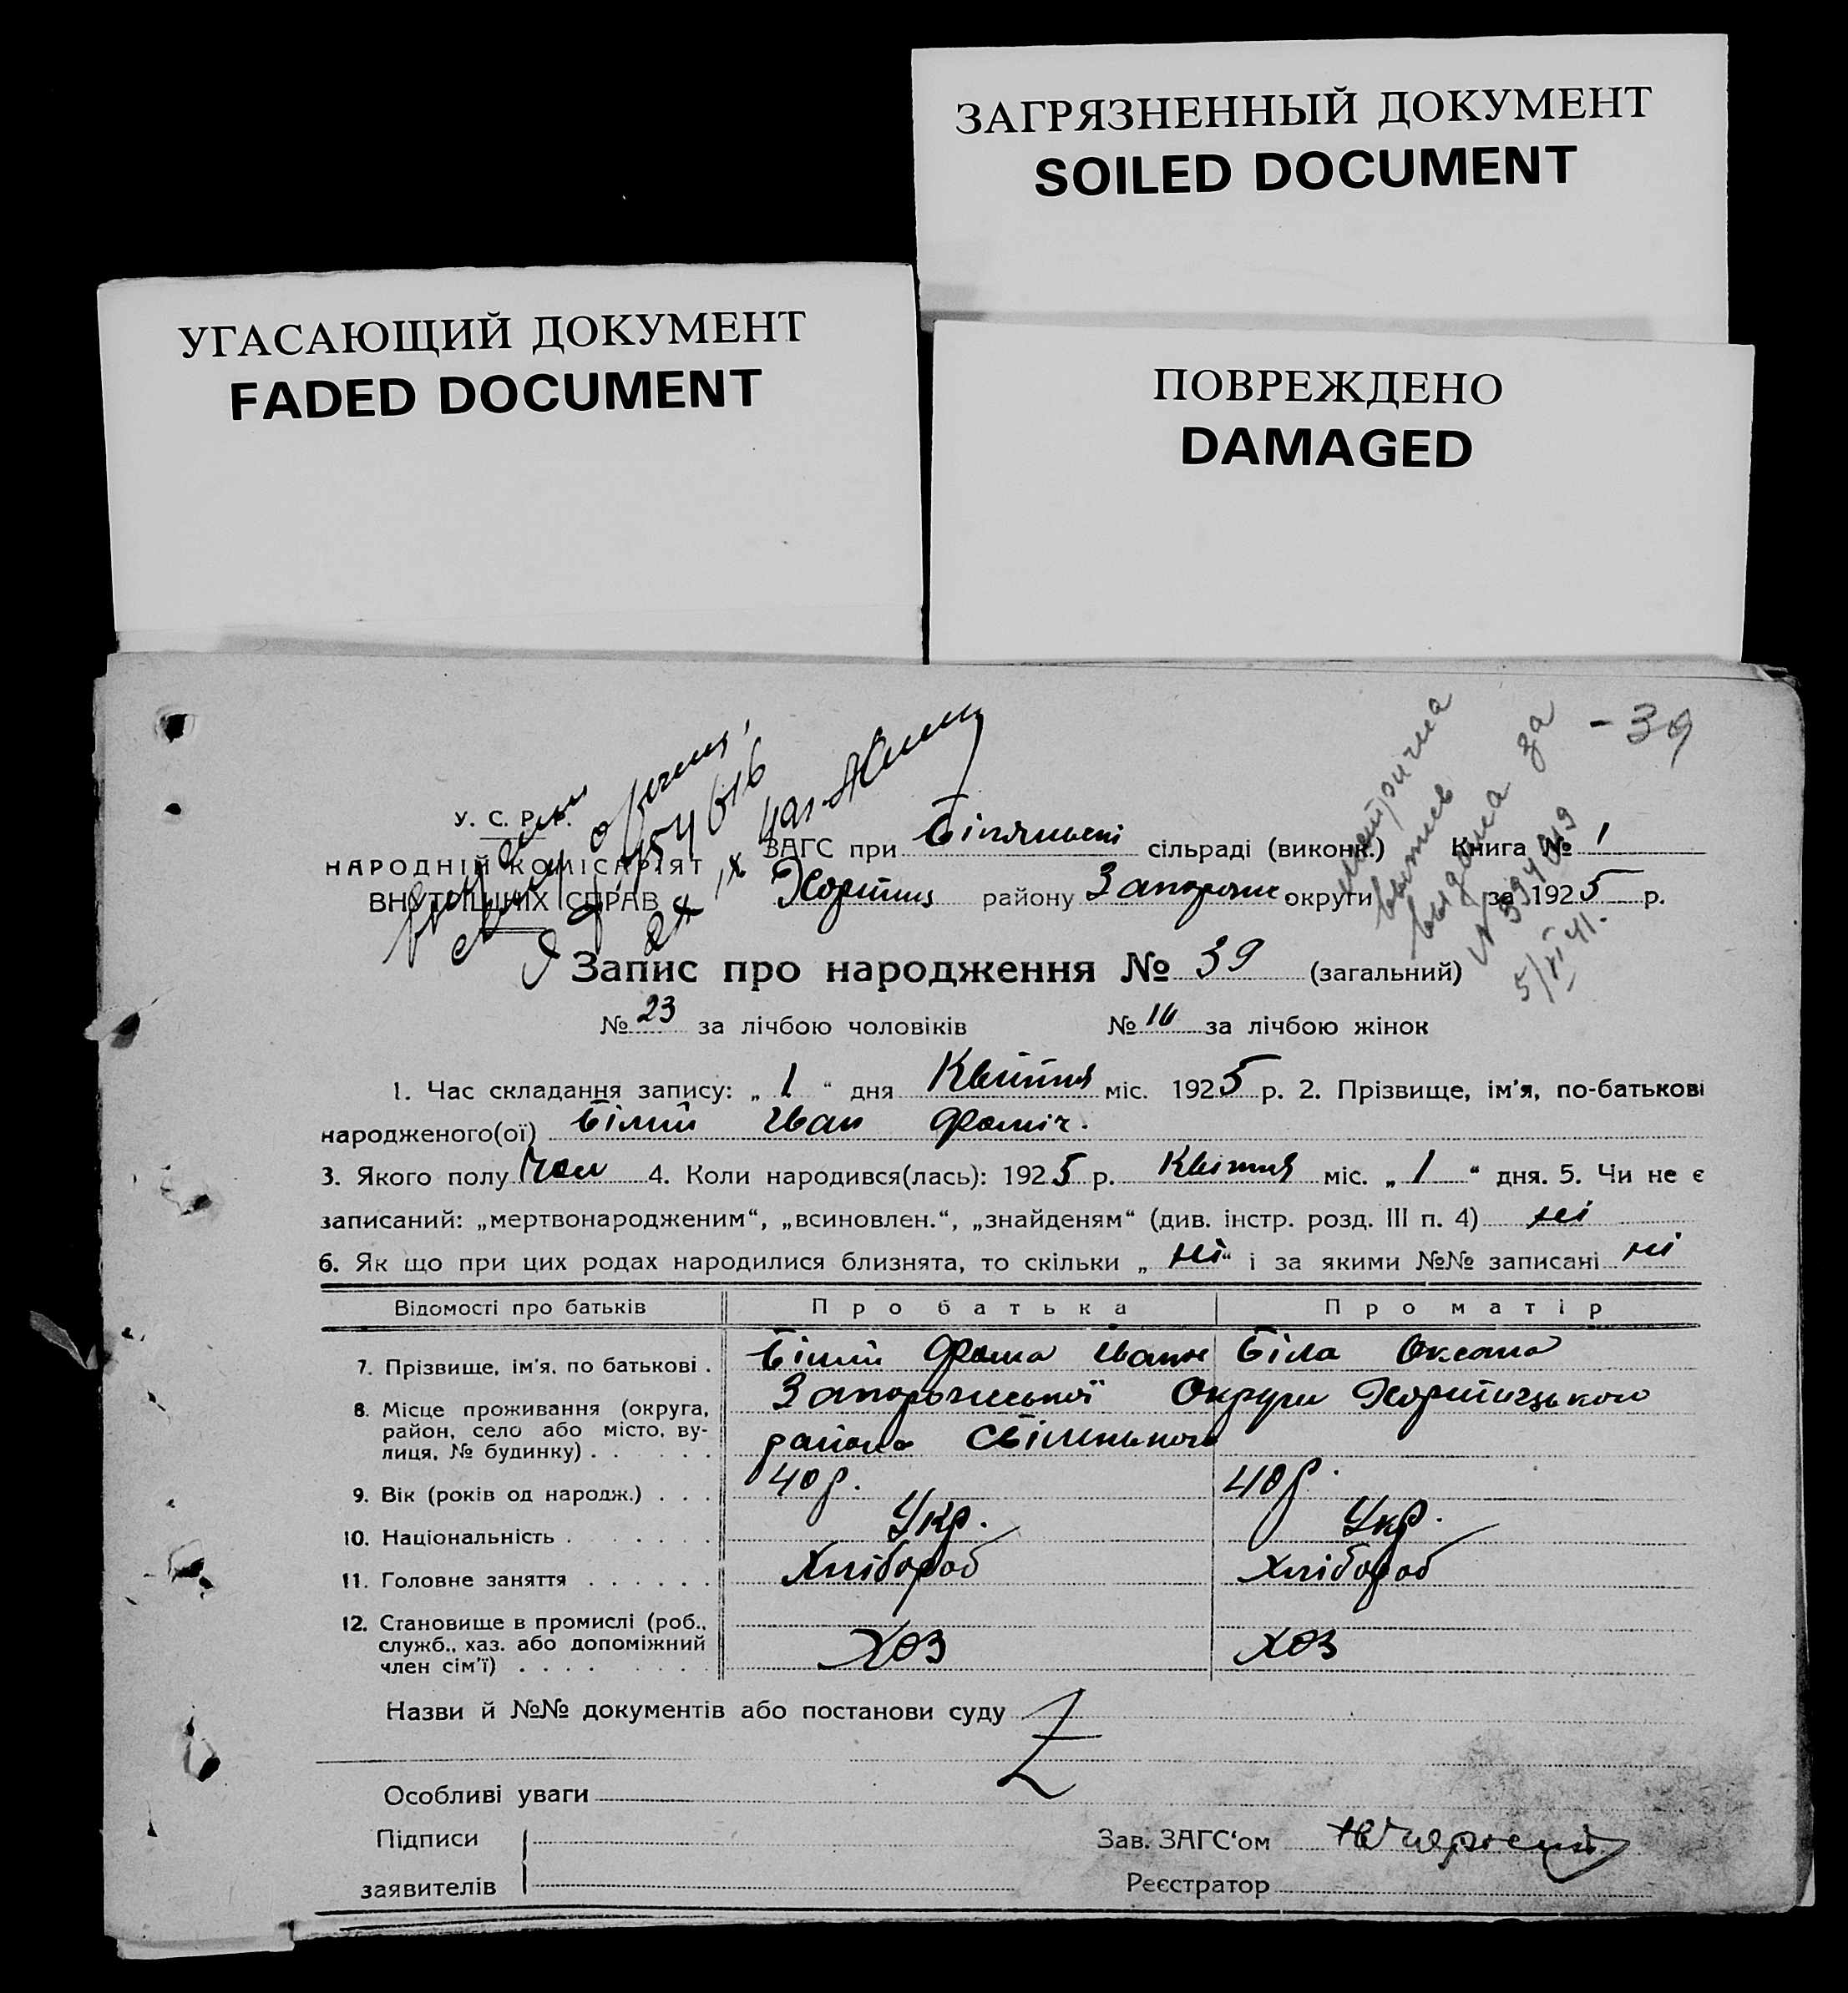 ЗАГРЯЗНЕННЫЙ ДОКУМЕНТ
SOILED DOCUMENT
УГАСАЮЩИЙ ДОКУМЕНТ
FADED DOCUMENT
ПОВРЕЖДЕНО
DAMAGED
- 39
метрична
витяв
выдана за
N 594019
5/VI 41.
У. С. Р. Р.
НАРОДНІЙ КОМІСАРІЯТ
ВНУТРІШНІХ СПРАВ
ЗАГС при сільраді (виконк.) Книга № 1
Хортиц району Запорож округи за 1925 р.
Запис про народження № 39 (загальний)
№ 23 за лічбою чоловіків № 16 за лічбою жінок
1. Час складання запису: „ 1 “ дня Квітня міс. 1925 р. 2. Прізвище, ім'я, по-батькові
народженого(ої) Білий Іван Фоміч.
3. Якого полу Чол 4. Коли народився(лась): 1925 р. Квітня міс. „ 1 “ дня. 5. Чи не є
записаний: „мертвонародженим“, „всиновлен.“, „знайденям“ (див. інстр. розд. III п. 4) ні
6. Як що при цих родах народилися близнята, то скільки „ ні “ і за якими №№ записані ні
Відомості про батьків Про батька Про матір
7. Прізвище, ім'я, по батькові . Білий Фома Іванов Біла Оксана
8. Місце проживання (округа, район, село або місто, вулиця, № будинку) . . . . . Запорожської Округи Хортицького
района
9. Вік (років од народж.) . . . 40 р. 40 р.
10. Національність . . . . . . Укр. Укр.
11. Головне заняття . . . . . . Хлібороб Хлібороб
12. Становище в промислі (роб., служб., хаз. або допоміжний член сім'ї) . . . . . . . . ХОЗ ХОЗ
Назви й №№ документів або постанови суду Z
Особливі уваги
Підписи
заявителів
Зав. ЗАГС'ом
Реєстратор